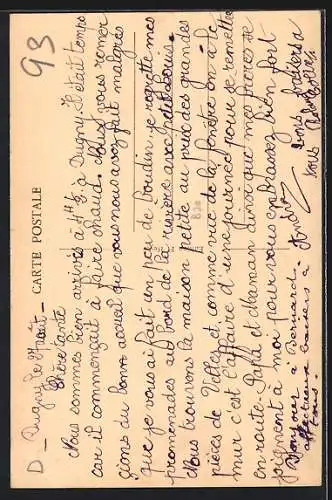 93
D
CARTE POSTALE
Dugny le 9 août
Chère tante
Nous sommes bien arrivés à 11h ½ à Dugny. Il était temps
car il commençait à faire chaud. Nous vous remer
çions du bon accueil que vous nous avez fait malgrés
que je vous ai fait un peu de boudin je regrette mes
promenades au bord de la rivière avec
Nous trouvons la maison petite au prix des grandes
pièces de Velles et comme vue de la fenêtre on a le
mur c'est l'affaire d'une journée pour se remettre
en route. Papa et maman ainsi que mes frères se
joignent à moi pour vous embrassez bien fort
Bonjour à Bernard.
affectueux baisers à
tous.